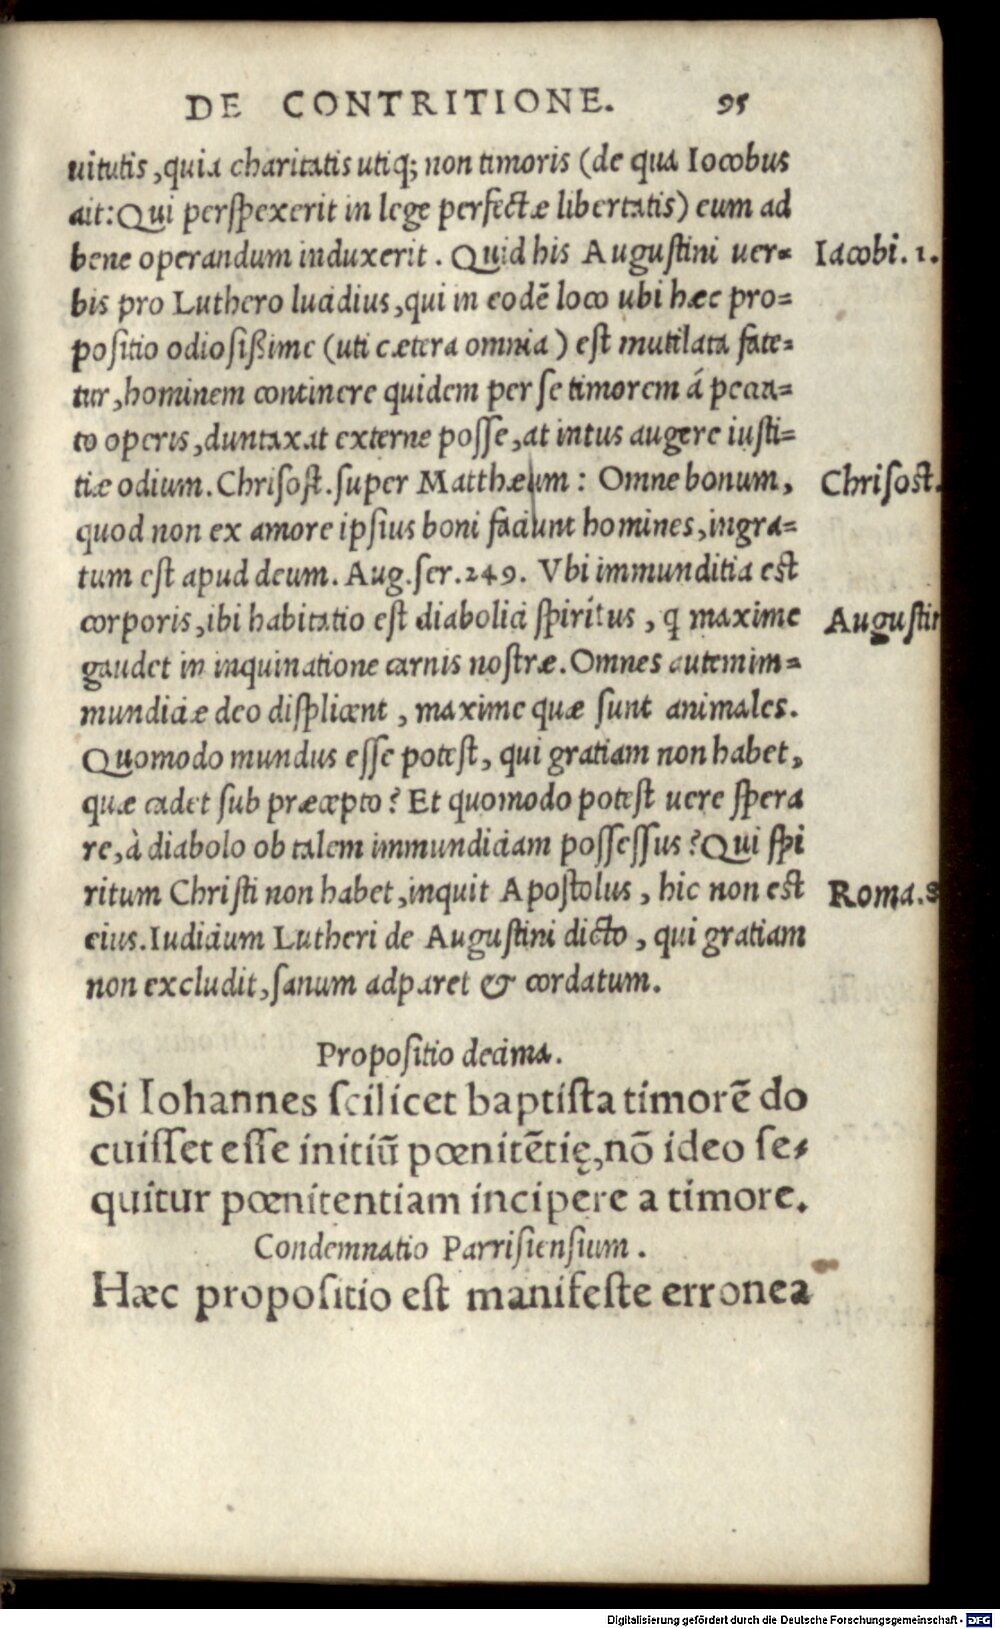 DE CONTRITIONE. 95
uitutis, quia charitatis utiq; non timoris (de qua Iocobus
ait: Qui perspexerit in lege perfectæ libertatis) eum ad
bene operandum induxerit. Quid his Augustini uer= Iacobi. 1.
bis pro Luthero lucidius, qui in eodē loco ubi hæc pro=
positio odiosißime (uti cætera omnia) est mutilata fate=
tur, hominem continere quidem per se timorem á pecca=
to operis, duntaxat externe posse, at intus augere iusti=
tiæ odium. Chrisost. super Matthæum: Omne bonum, Chrisost.
quod non ex amore ipsius boni faciunt homines, ingra=
tum est apud deum. Aug. ser. 249. Vbi immunditia est
corporis, ibi habitatio est diabolici spiritus, q maxime Augustin
gaudet in inquinatione carnis nostræ. Omnes autem im=
mundiciæ deo displicent, maxime quæ sunt animales.
Quomodo mundus esse potest, qui gratiam non habet,
quæ cadet sub præcepto? Et quomodo potest uere spera
re, à diabolo ob talem immundiciam possessus? Qui spi
ritum Christi non habet, inquit Apostolus, hic non est Roma. 8
eius. Iudicium Lutheri de Augustini dicto, qui gratiam
non excludit, sanum adparet & cordatum.
Propositio decima.
Si Iohannes scilicet baptista timorē do
cuisset esse initiū pœnitētię, nō ideo se=
quitur pœnitentiam incipere a timore.
Condemnatio Parrisiensium.
Hæc propositio est manifeste erronea
Digitalisierung gefördert durch die Deutsche Forschungsgemeinschaft - DFG